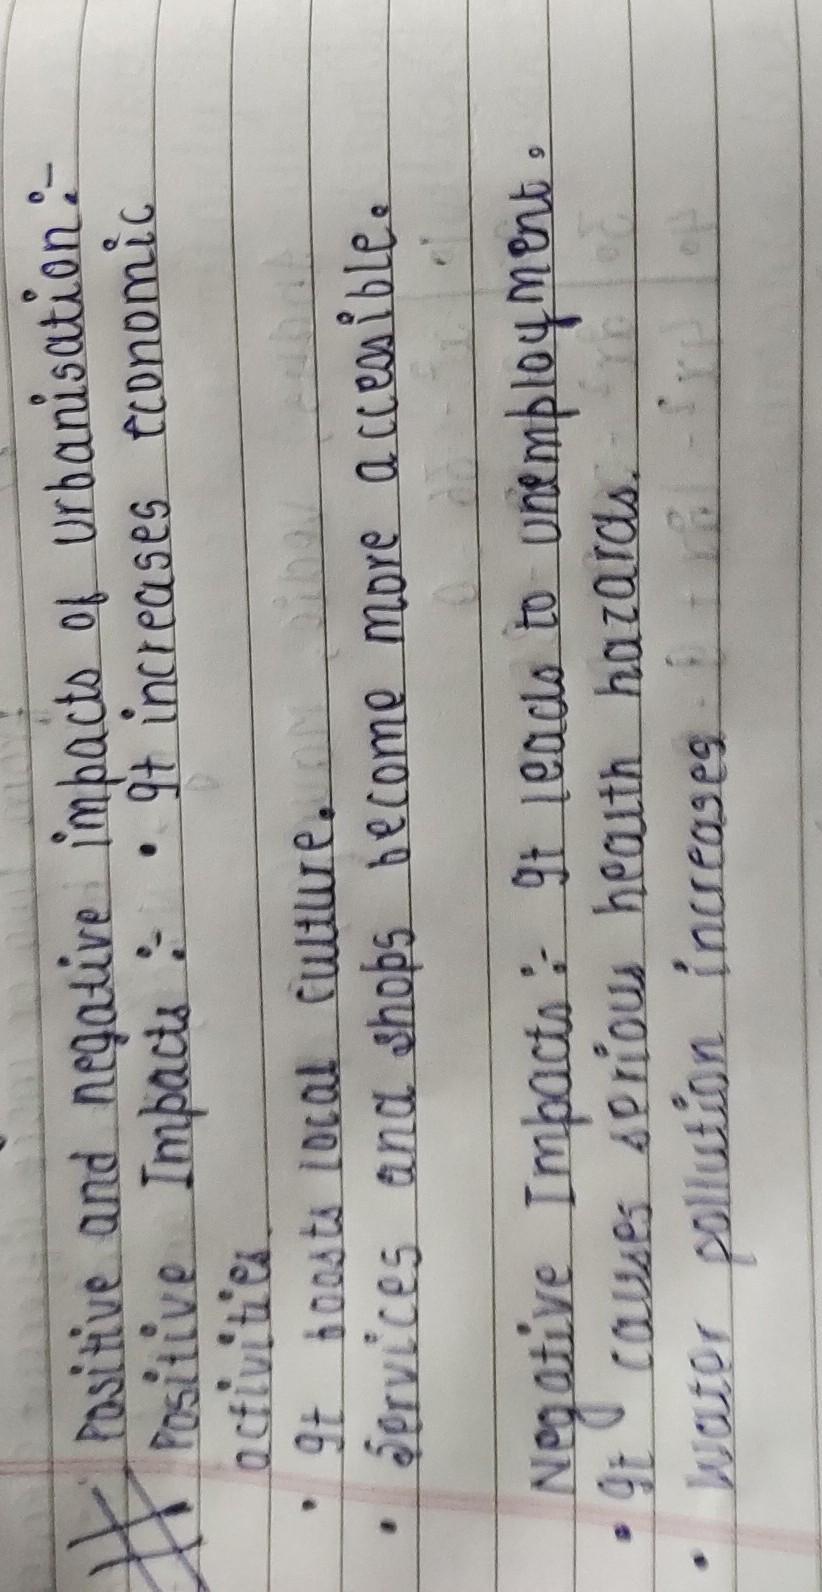 # Positive and negative impacts of urbanisation :-
Positive Impacts :- • It increases economic
activities
• It boosts local culture.
• Services and shops become more accessible.
Negative Impacts :- It leads to unemployment.
• It causes serious health hazards.
• Water pollution increases